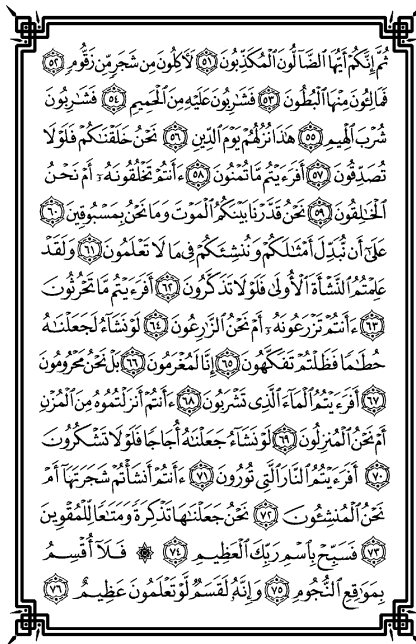 ثُمَّ إِنَّكُمْ أَيُّهَا الضَّالُّونَ الْمُكَذِّبُونَ ٥١ لَآكِلُونَ مِن شَجَرٍ مِّن زَقُّومٍ ٥٢
فَمَالِئُونَ مِنْهَا الْبُطُونَ ٥٣ فَشَارِبُونَ عَلَيْهِ مِنَ الْحَمِيمِ ٥٤ فَشَارِبُونَ
شُرْبَ الْهِيمِ ٥٥ هَٰذَا نُزُلُهُمْ يَوْمَ الدِّينِ ٥٦ نَحْنُ خَلَقْنَاكُمْ فَلَوْلَا
تُصَدِّقُونَ ٥٧ أَفَرَءَيْتُم مَّا تُمْنُونَ ٥٨ ءَأَنتُمْ تَخْلُقُونَهُ أَمْ نَحْنُ
الْخَالِقُونَ ٥٩ نَحْنُ قَدَّرْنَا بَيْنَكُمُ الْمَوْتَ وَمَا نَحْنُ بِمَسْبُوقِينَ ٦٠
عَلَىٰ أَن نُّبَدِّلَ أَمْثَالَكُمْ وَنُنشِئَكُمْ فِي مَا لَا تَعْلَمُونَ ٦١ وَلَقَدْ
عَلِمْتُمُ النَّشْأَةَ الْأُولَىٰ فَلَوْلَا تَذَكَّرُونَ ٦٢ أَفَرَءَيْتُم مَّا تَحْرُثُونَ
٦٣ ءَأَنتُمْ تَزْرَعُونَهُ أَمْ نَحْنُ الزَّارِعُونَ ٦٤ لَوْ نَشَاءُ لَجَعَلْنَاهُ
حُطَامًا فَظَلْتُمْ تَفَكَّهُونَ ٦٥ إِنَّا لَمُغْرَمُونَ ٦٦ بَلْ نَحْنُ مَحْرُومُونَ
٦٧ أَفَرَءَيْتُمُ الْمَاءَ الَّذِي تَشْرَبُونَ ٦٨ ءَأَنتُمْ أَنزَلْتُمُوهُ مِنَ الْمُزْنِ
أَمْ نَحْنُ الْمُنزِلُونَ ٦٩ لَوْ نَشَاءُ جَعَلْنَاهُ أُجَاجًا فَلَوْلَا تَشْكُرُونَ
٧٠ أَفَرَءَيْتُمُ النَّارَ الَّتِي تُورُونَ ٧١ ءَأَنتُمْ أَنشَأْتُمْ شَجَرَتَهَا أَمْ
نَحْنُ الْمُنشِئُونَ ٧٢ نَحْنُ جَعَلْنَاهَا تَذْكِرَةً وَمَتَاعًا لِّلْمُقْوِينَ
٧٣ فَسَبِّحْ بِاسْمِ رَبِّكَ الْعَظِيمِ ٧٤ ۞ فَلَا أُقْسِمُ
بِمَوَاقِعِ النُّجُومِ ٧٥ وَإِنَّهُ لَقَسَمٌ لَّوْ تَعْلَمُونَ عَظِيمٌ ٧٦